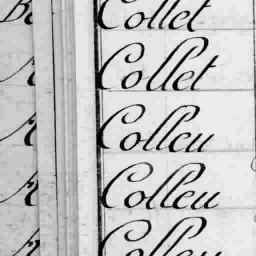 Collet
Collet
Colleu
Colleu
Colleu